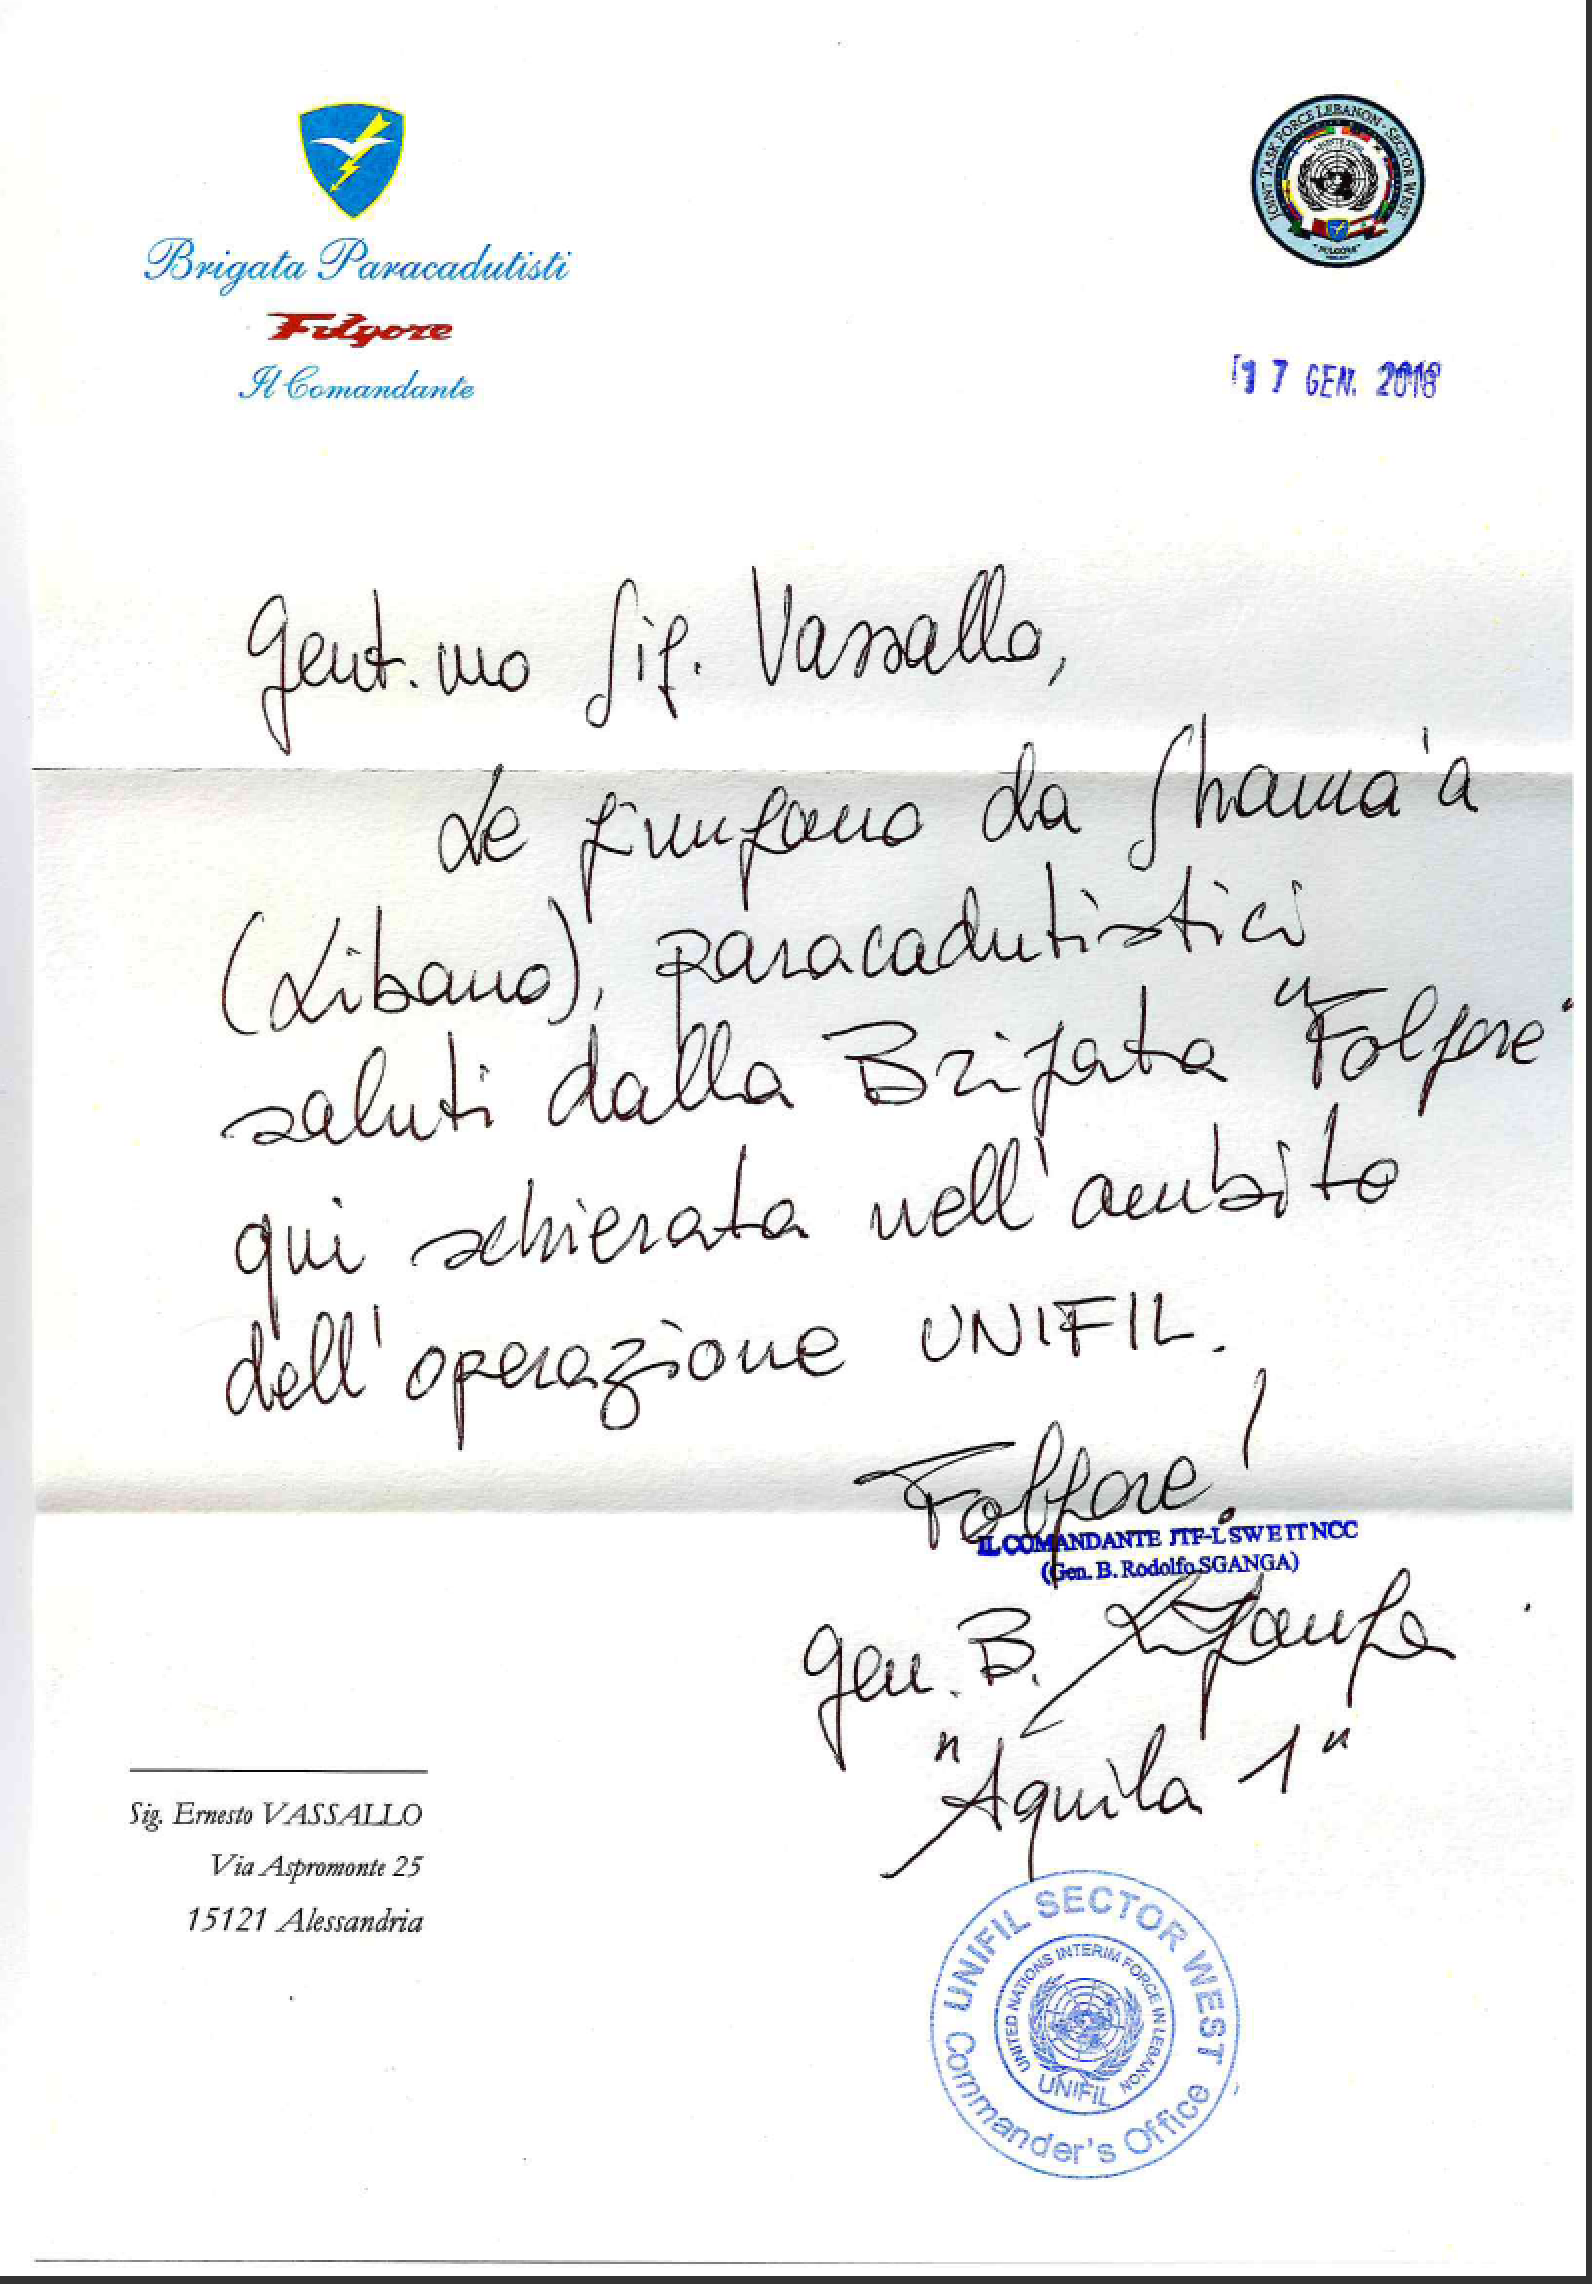 Brigata Paracadutisti
Folgore
Il Comandante
JOINT TASK FORCE LEBANON - SECTOR WEST
"FOLGORE"
17 GEN. 2018
Gent.mo Sig. Vassallo,
Le giungano da Shama'a
(Libano), paracadutistici
saluti dalla Brigata "Folgore"
qui schierata nell'ambito
dell'operazione UNIFIL.
Folgore!
IL COMANDANTE JTF-L SW E IT NCC
(Gen. B. Rodolfo SGANGA)
Gen. B. Sganga
"Aquila 1"
Sig. Ernesto VASSALLO
Via Aspromonte 25
15121 Alessandria
UNIFIL SECTOR WEST
UNITED NATIONS INTERIM FORCE IN LEBANON
UNIFIL
Commander's Office